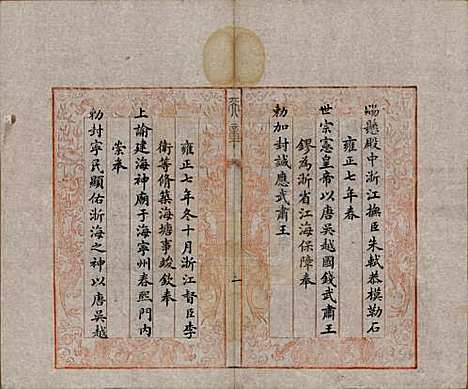 賜懸殿中浙江撫臣朱軾恭模勒石
雍正七年春
世宗憲皇帝以唐吳越國錢武肅王
鏐為浙省江海保障奉
勅加封誠應武肅王
天章
一
雍正七年冬十月浙江督臣李
衛等脩築海塘事竣欽奉
上諭建海神廟于海寧州春熙門內
崇奉
勅封寧民顯佑浙海之神以唐吳越